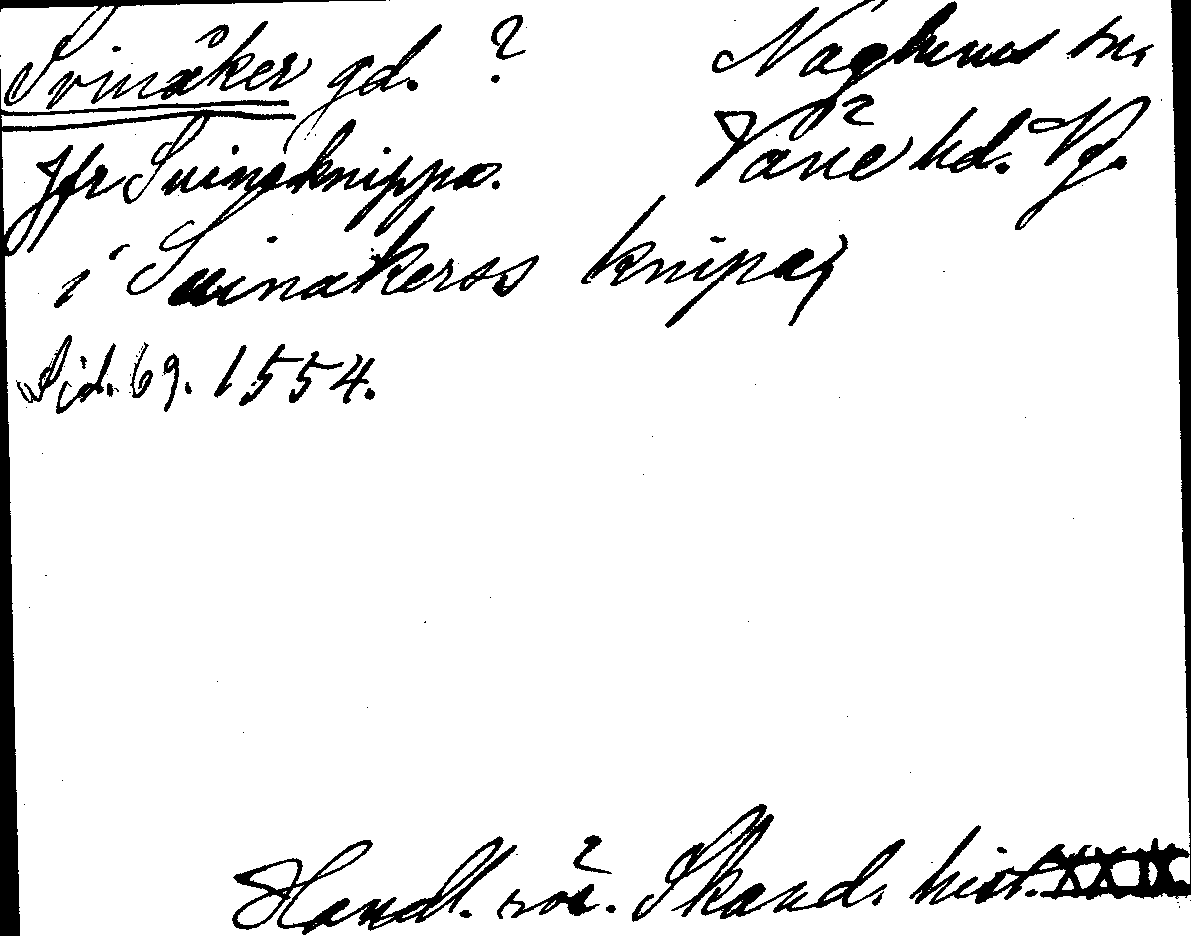 Svinåker gd. ? Naglums sn.
Jfr Svinaknippa. Väne hd. Vg.
i Suinakerss knipa,
Sid. 69. 1554.
Handl. rör. Skand. hist. XXIX.